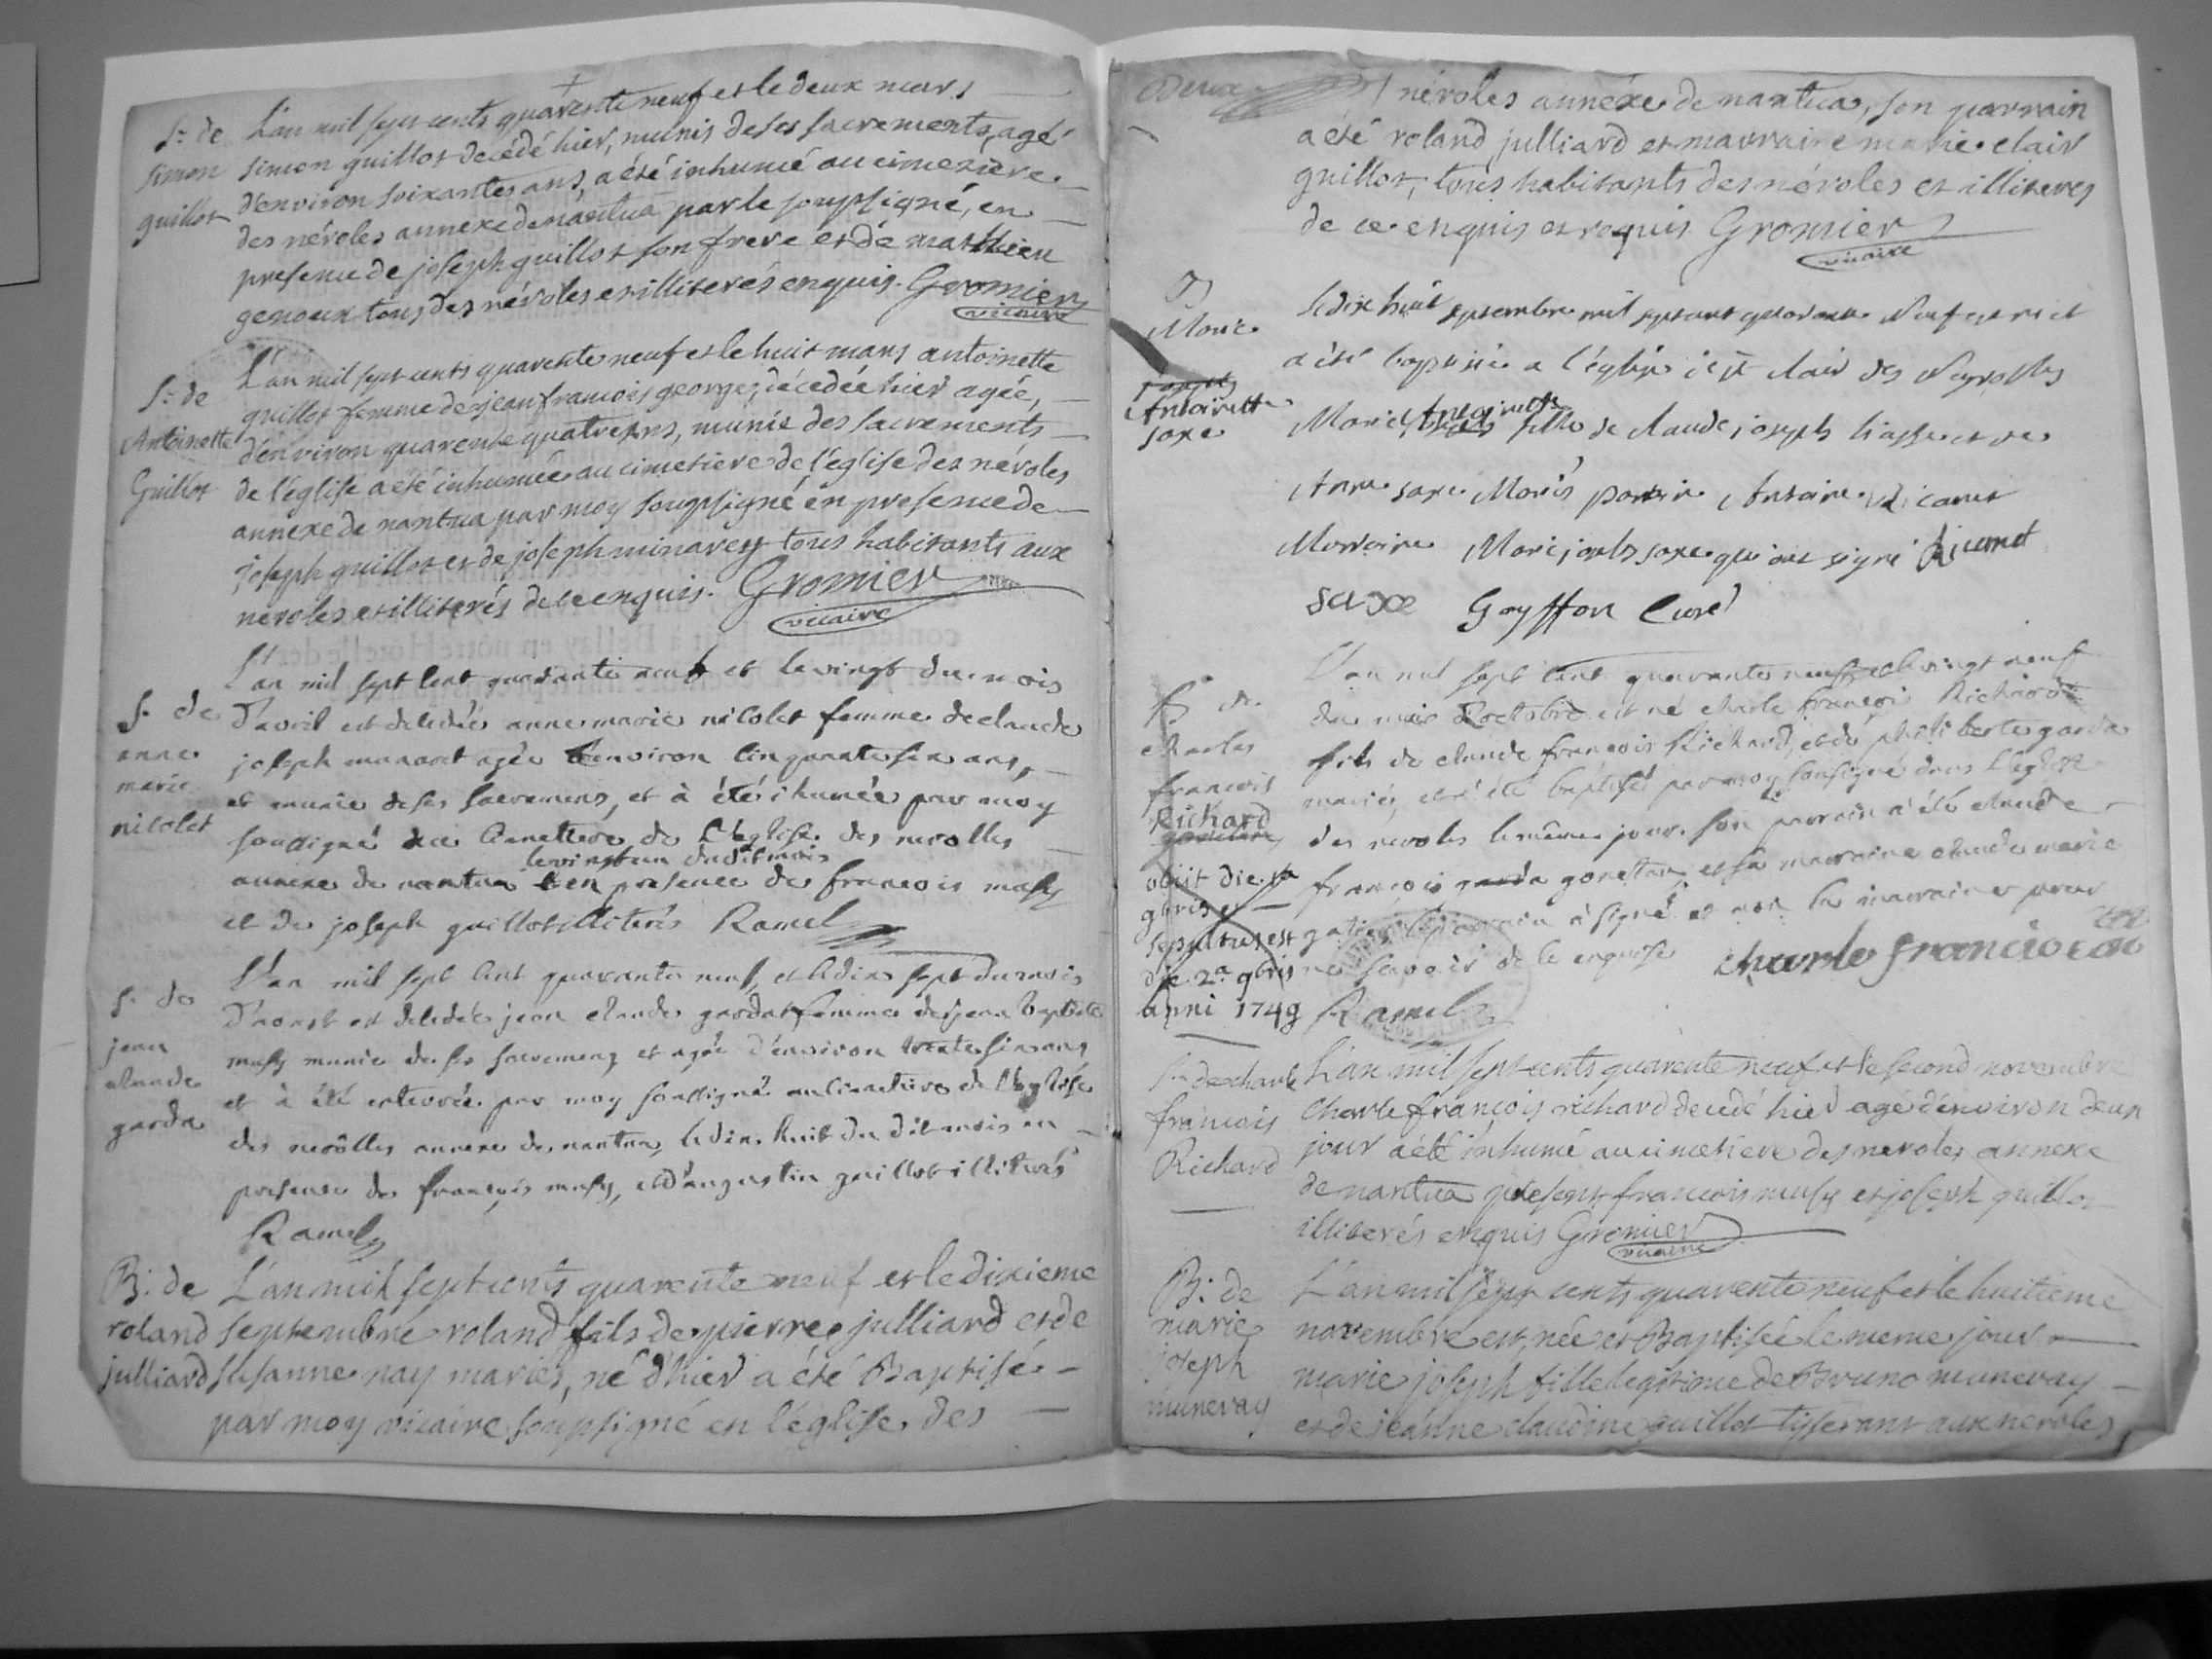 S.re de
simon
guillot
L'an mil sept cents quarente neuf et le deux mars
simon guillot decédé hier, munis de ses sacrements, agé
d'environ soixantes ans, a été inhumé au cimetiere
des néroles annexe de nantua par le soupsigné, en
presence de joseph guillot son frere et de mathieu
genoux tous des néroles et illiterés enquis. Gromier
vicaire
S.re de
Antoinette
Guillot
L'an mil sept cents quarente neuf et le huit mars antoinette
guillot femme de jean francois georges, décédée hier agée,
d'environ quarente quatre ans, munie des sacrements
de l'église a été inhumée au cimetiere de l'église des néroles
annexe de nantua par moy soupsigné en presence de
joseph guillot et de joseph minavey tous habitants aux
neroles et illiterés de ce enquis. Gromier
vicaire
S. de
anne
marie
nicolet
L'an mil sept cent quarante neuf et le vingt du mois
d'avril est decedée anne marie nicolet femme de claude
joseph munaret agée d'environ cinquante six ans,
et munie de ses sacremens, et à été ihumée par moy
soussigné au cimettiere de L'église des nerolles
le vingt un dudit mois
annexe de nantua et en presence de francois musy
et de joseph guillot illiterés Ramel
S. de
jean
claude
garda
L'an mil sept cent quarante neuf, et le dix sept du mois
d'aoust est decedée jean claude gardat femme de jean baptiste
musy munie de ses sacremens et agée d'environ trente six ans
et à été enterrée par moy soussigné au cimetiere de l'église
des nerôlles annexe de nantua, le dix huit du dit mois en
presence de françois musy, et d'augustin guillot illiterés
Ramel
B. de
roland
julliard
L'an mil sept cents quarente neuf et le dixieme
septembre roland fils de pierre julliard et de
susanne nay mariés, né d'hier a été Baptisé
par moy vicaire soupsigné en l'église des
Deux
néroles annéxe de nantua, son parrain
a été roland julliard et marraine marie clair
guillot, tous habitants des néroles et illiteres
de ce enquis et requis Gromier
vicaire
B
Marie
Antoinette
saxe
le dix huit septembre mil sept cent quarante neuf est né et
a été baptisée a l'église de st clair des Neyrolles
Marie Antoinette fille de claude joseph et de
Anne saxe Mariés parrain Antoine Nicanet
Marraine Marie saxe qui ont signé
saxe Goyffon Curé
B de
charles
francois
Richard
obiit die 1a
9bris et
sepultus est
die 2a 9bris
anni 1749
L'an mil sept cent quarante neuf et le vingt neuf
du mois d'octobre est né charle françois Richard
fils de claude françois Richard, et de philiberte garda
mariés, et à été baptisé par moy soussigné dans L'église
des neroles le même jour. son parrain a été claude
françois garda gonettan, et sa marraine claude marie
le parrain à signé et non la marraine pour
ne savoir de ce enquise charle francio
Ramel
S.re de charle
francois
Richard
L'an mil sept cents quarente neuf et le second novembre
Charle françois richard decedé hier agé d'environ deux
jour a été inhumé au cimetiere des neroles annexe
de nantua presents francois musy et joseph guillot
illiterés enquis Gromier
vicaire
B. de
marie
joseph
munevay
L'an mil sept cents quarente neuf et le huitieme
novembre est née et Baptisée le meme jour
marie joseph fille legitime de Bruno munevay
et de jeanne claudine guillot tisserant aux neroles